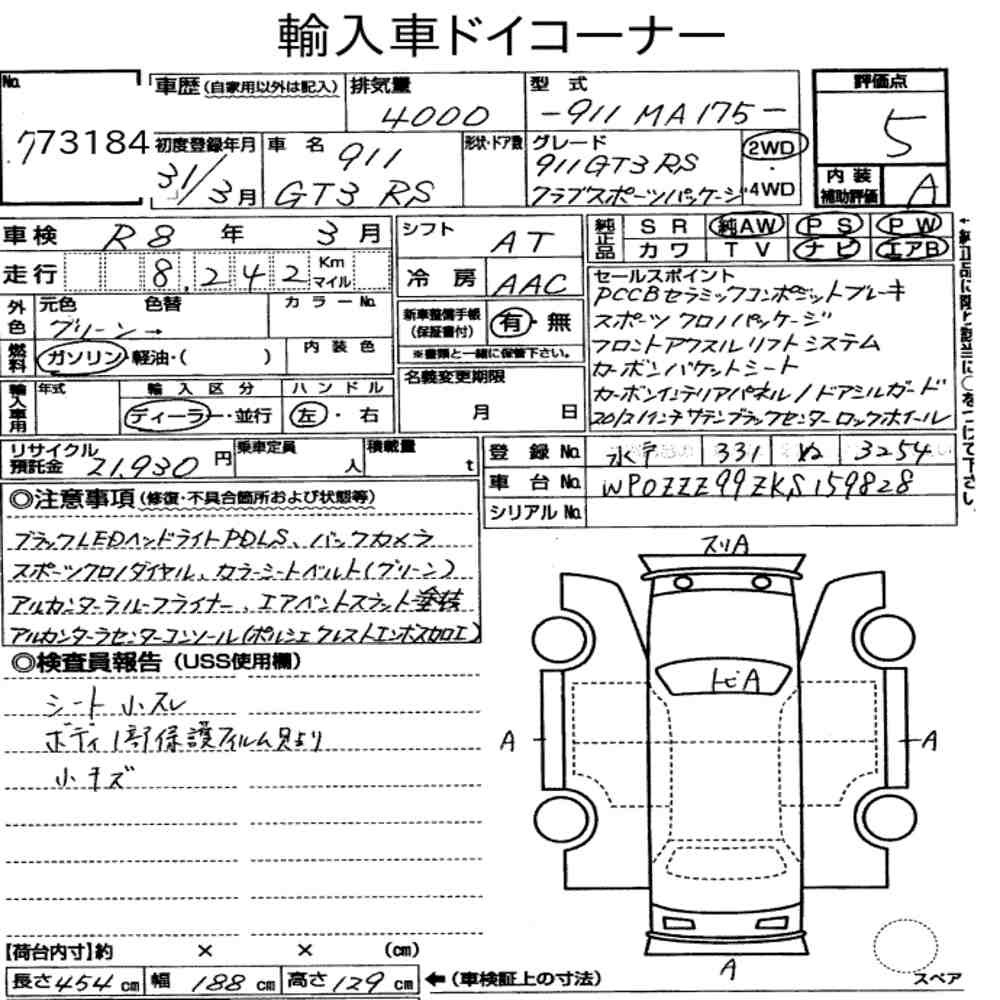 輸入車ドイコーナー
No. 773184
車歴(自家用以外は記入)
排気量 4000
型式 -911 MA175-
評価点 5
初度登録年月 31/3月
車名 911 GT3 RS
形状・ドア数
グレード 911GT3RS クラブスポーツパッケージ
2WD・4WD
内装補助評価 A
車検 R8年 3月
走行 8,242 Km マイル
シフト AT
冷房 AAC
純正品 SR 純AW PS PW
カワ TV ナビ エアB
外色 元色 色替 カラーNo.
グリーン→
燃料 ガソリン・軽油・( ) 内装色
新車整備手帳(保証書付) 有・無
※書類と一緒に保管下さい。
輸入車用 年式 輸入区分 ハンドル
ディーラー・並行 左・右
名義変更期限
月 日
セールスポイント
PCCBセラミックコンポジットブレーキ
スポーツクロノパッケージ
フロントアクスルリフトシステム
カーボンバケットシート
カーボンインテリアパネル/ドアシルガード
20/21インチサテンブラックセンターロックホイール
リサイクル預託金 21,930円
乗車定員 人
積載量 t
登録No. 水戸 331 ぬ 3254
車台No. WP0ZZZ99ZKS159828
シリアルNo.
◎注意事項(修復・不具合箇所および状態等)
ブラックLEDヘッドライトPDLS、バックカメラ
スポーツクロノダイヤル、カラーシートベルト(グリーン)
アルカンターラルーフライナー、エアベントスラット塗装
アルカンターラセンターコンソール(ポルシェクレストエンボス加工)
◎検査員報告(USS使用欄)
シート小スレ
ボディ1部保護フィルム見より
小キズ
スリA
トビA
A
A
A
スペア
【荷台内寸】約 × × (cm)
長さ454cm 幅188cm 高さ129cm
←(車検証上の寸法)